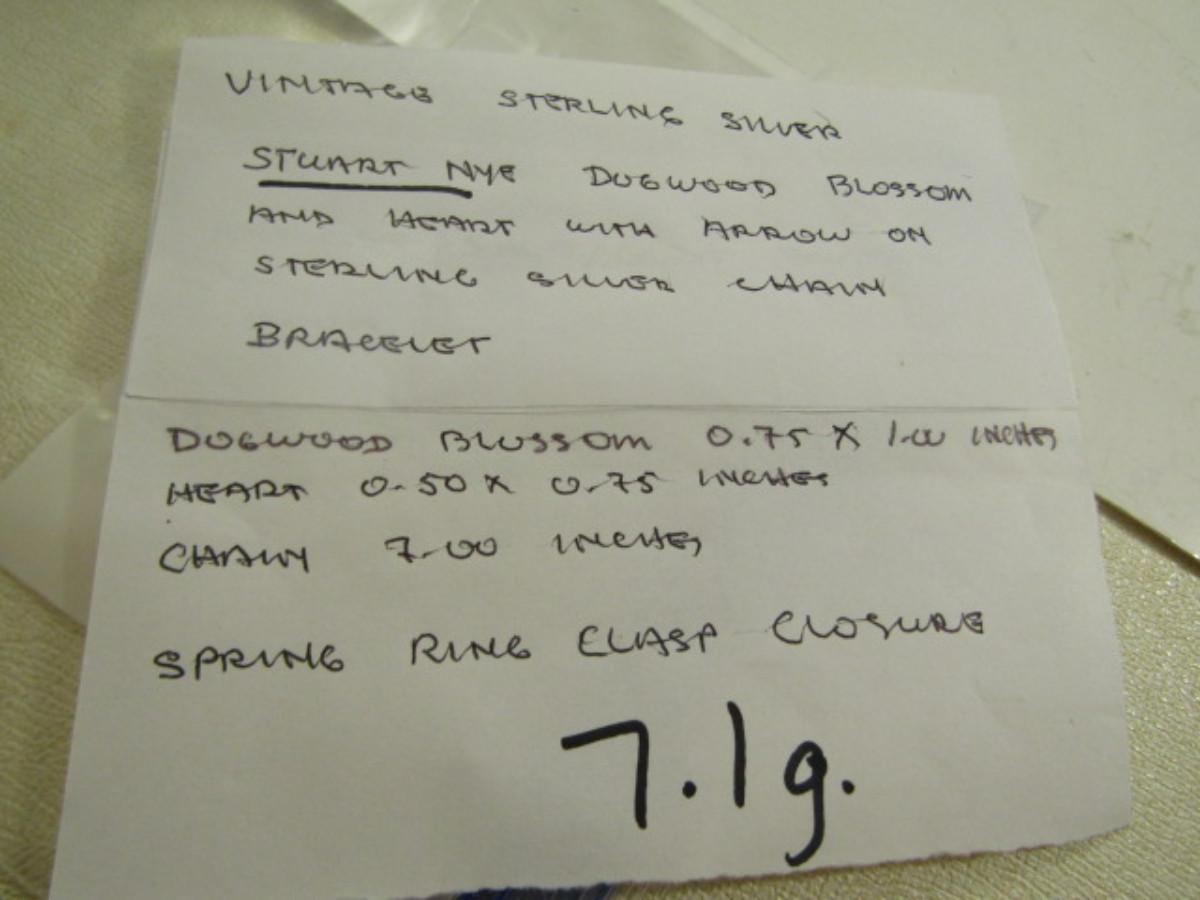 VINTAGE STERLING SILVER
STUART NYE DOGWOOD BLOSSOM
AND HEART WITH ARROW ON
STERLING SILVER CHAIN
BRACELET
DOGWOOD BLOSSOM 0.75 X 1.00 INCHES
HEART 0.50 X 0.75 INCHES
CHAIN 7.00 INCHES
SPRING RING CLASP CLOSURE
7.1g.